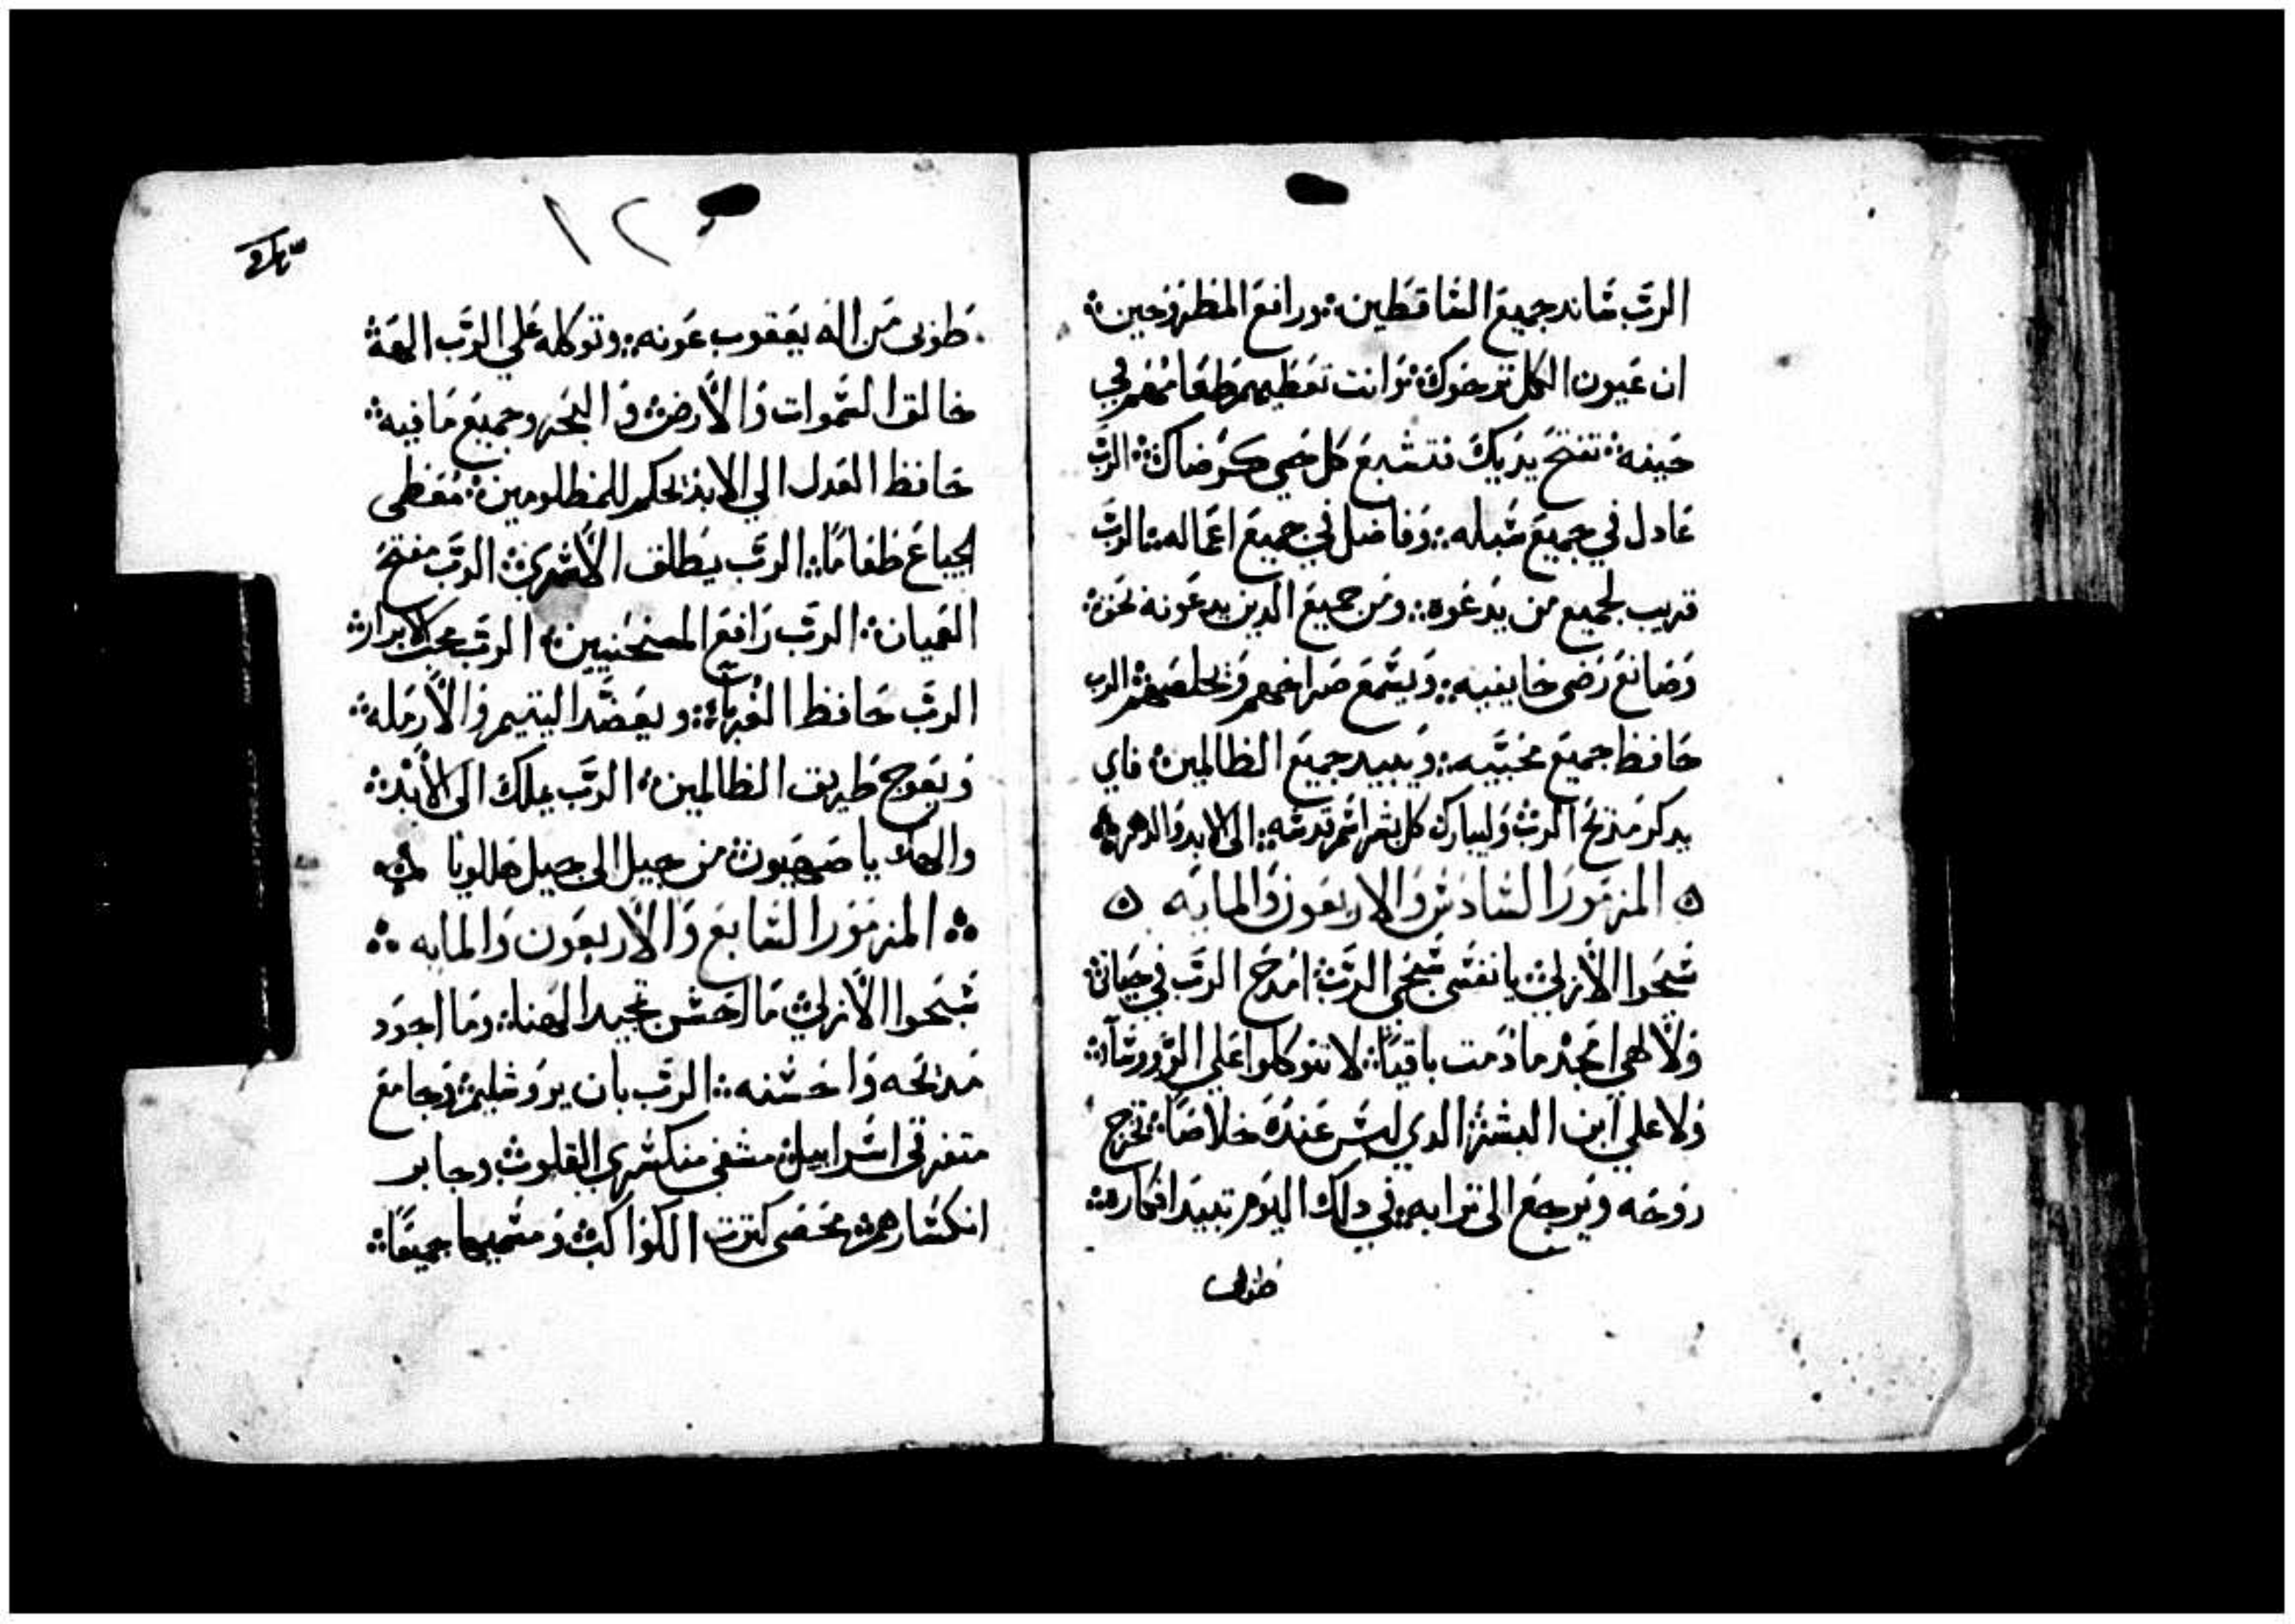 الرب ساند جميع الساقطين ورافع المطروحين
ان عيون الكل ترجوك وانت تعطيهم طعامهم في
حينه تفتح يديك فتشبع كل حي كرضاك الرب
عادل في جميع سبله وفاضل في جميع اعماله الرب
قريب لجميع من يدعوه ومن جميع الدين يدعونه نحوه
وصانع رضى خايفيه ويسمع صراخهم ويخلصهم الرب
حافظ جميع محبيه ويبيد جميع الظالمين فاي
يدكر مديح الرب وليبارك كل بشر اسم قدسه الى الابد والدهر
المزمور السادس والاربعون والمايه
سبحوا الأزلي يا نفسي سبحي الرب امدح الرب في حياتي
ولالهي امجد ما دمت باقيًا لا تتوكلوا على الرورسآ
ولا علي ابن البشر الدي ليس عنده خلاصًا تخرج
روحه ويرجع الى ترابه في دلك اليوم تبيد افكاره
طوبى
١٢
طوبى من اله يعقوب عونه وتوكله علي الرب الهه
خالق السموات والأرض والبحر وجميع ما فيه
حافظ العدل الي الابد الحكم للمظلومين معطى
الجياع طعامًا الرب يطلق الأسرى الرب مفتح
العميان الرب رافع المنحنيين الرب محب الابرار
الرب حافظ الغربآ ويعضد اليتيم والأرمله
ويعوج طريق الظالمين الرب يملك الى الأبد
والهك يا صهيون من جيل الى جيل هللويا
المزمور السابع والأربعون والمايه
سبحوا الأزلي ما احسن تمجيد الهنا وما اجود
مديحه واحسنه الرب بان يروشليم وجامع
متفرقى اسراييل مشفى منكسرى القلوب وجابر
انكسارهم محصى كترت الكواكب ومسميها جميعًا